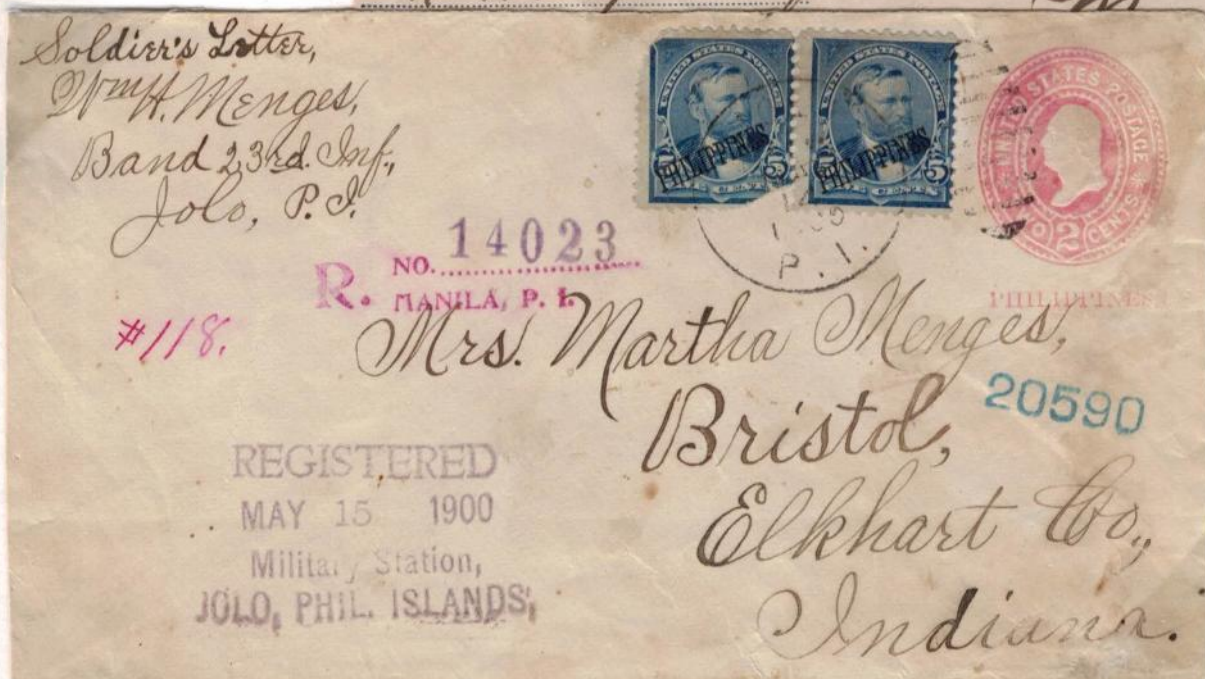 Soldier's Letter,
Wm H. Menges,
Band 23rd. Inf.,
Jolo, P. I.
UNITED STATES POSTAGE
PHILIPPINES
5 5
UNITED STATES POSTAGE
PHILIPPINES
5 5
P. I.
UNITED STATES POSTAGE
TWO 2 CENTS
PHILIPPINES
R. NO. 14023
MANILA, P. I.
#118.
Mrs. Martha Menges,
Bristol,
20590
Elkhart Co.,
Indiana.
REGISTERED
MAY 15 1900
Military Station,
JOLO, PHIL. ISLANDS,